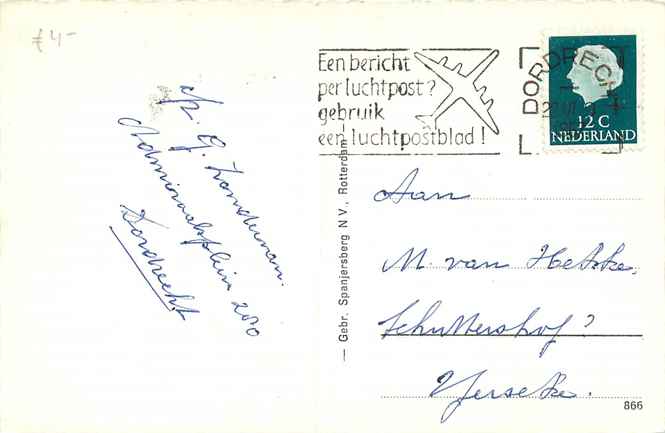 £ 4-
Een bericht
per luchtpost?
gebruik
een luchtpostblad!
DORDRECHT
12 C
NEDERLAND
G. Zandeman.
Admiraalsplein 200
Dordrecht
Aan
M. van Hekke.
Schuttershof?
Yerseke.
— Gebr. Spanjersberg N.V., Rotterdam —
866